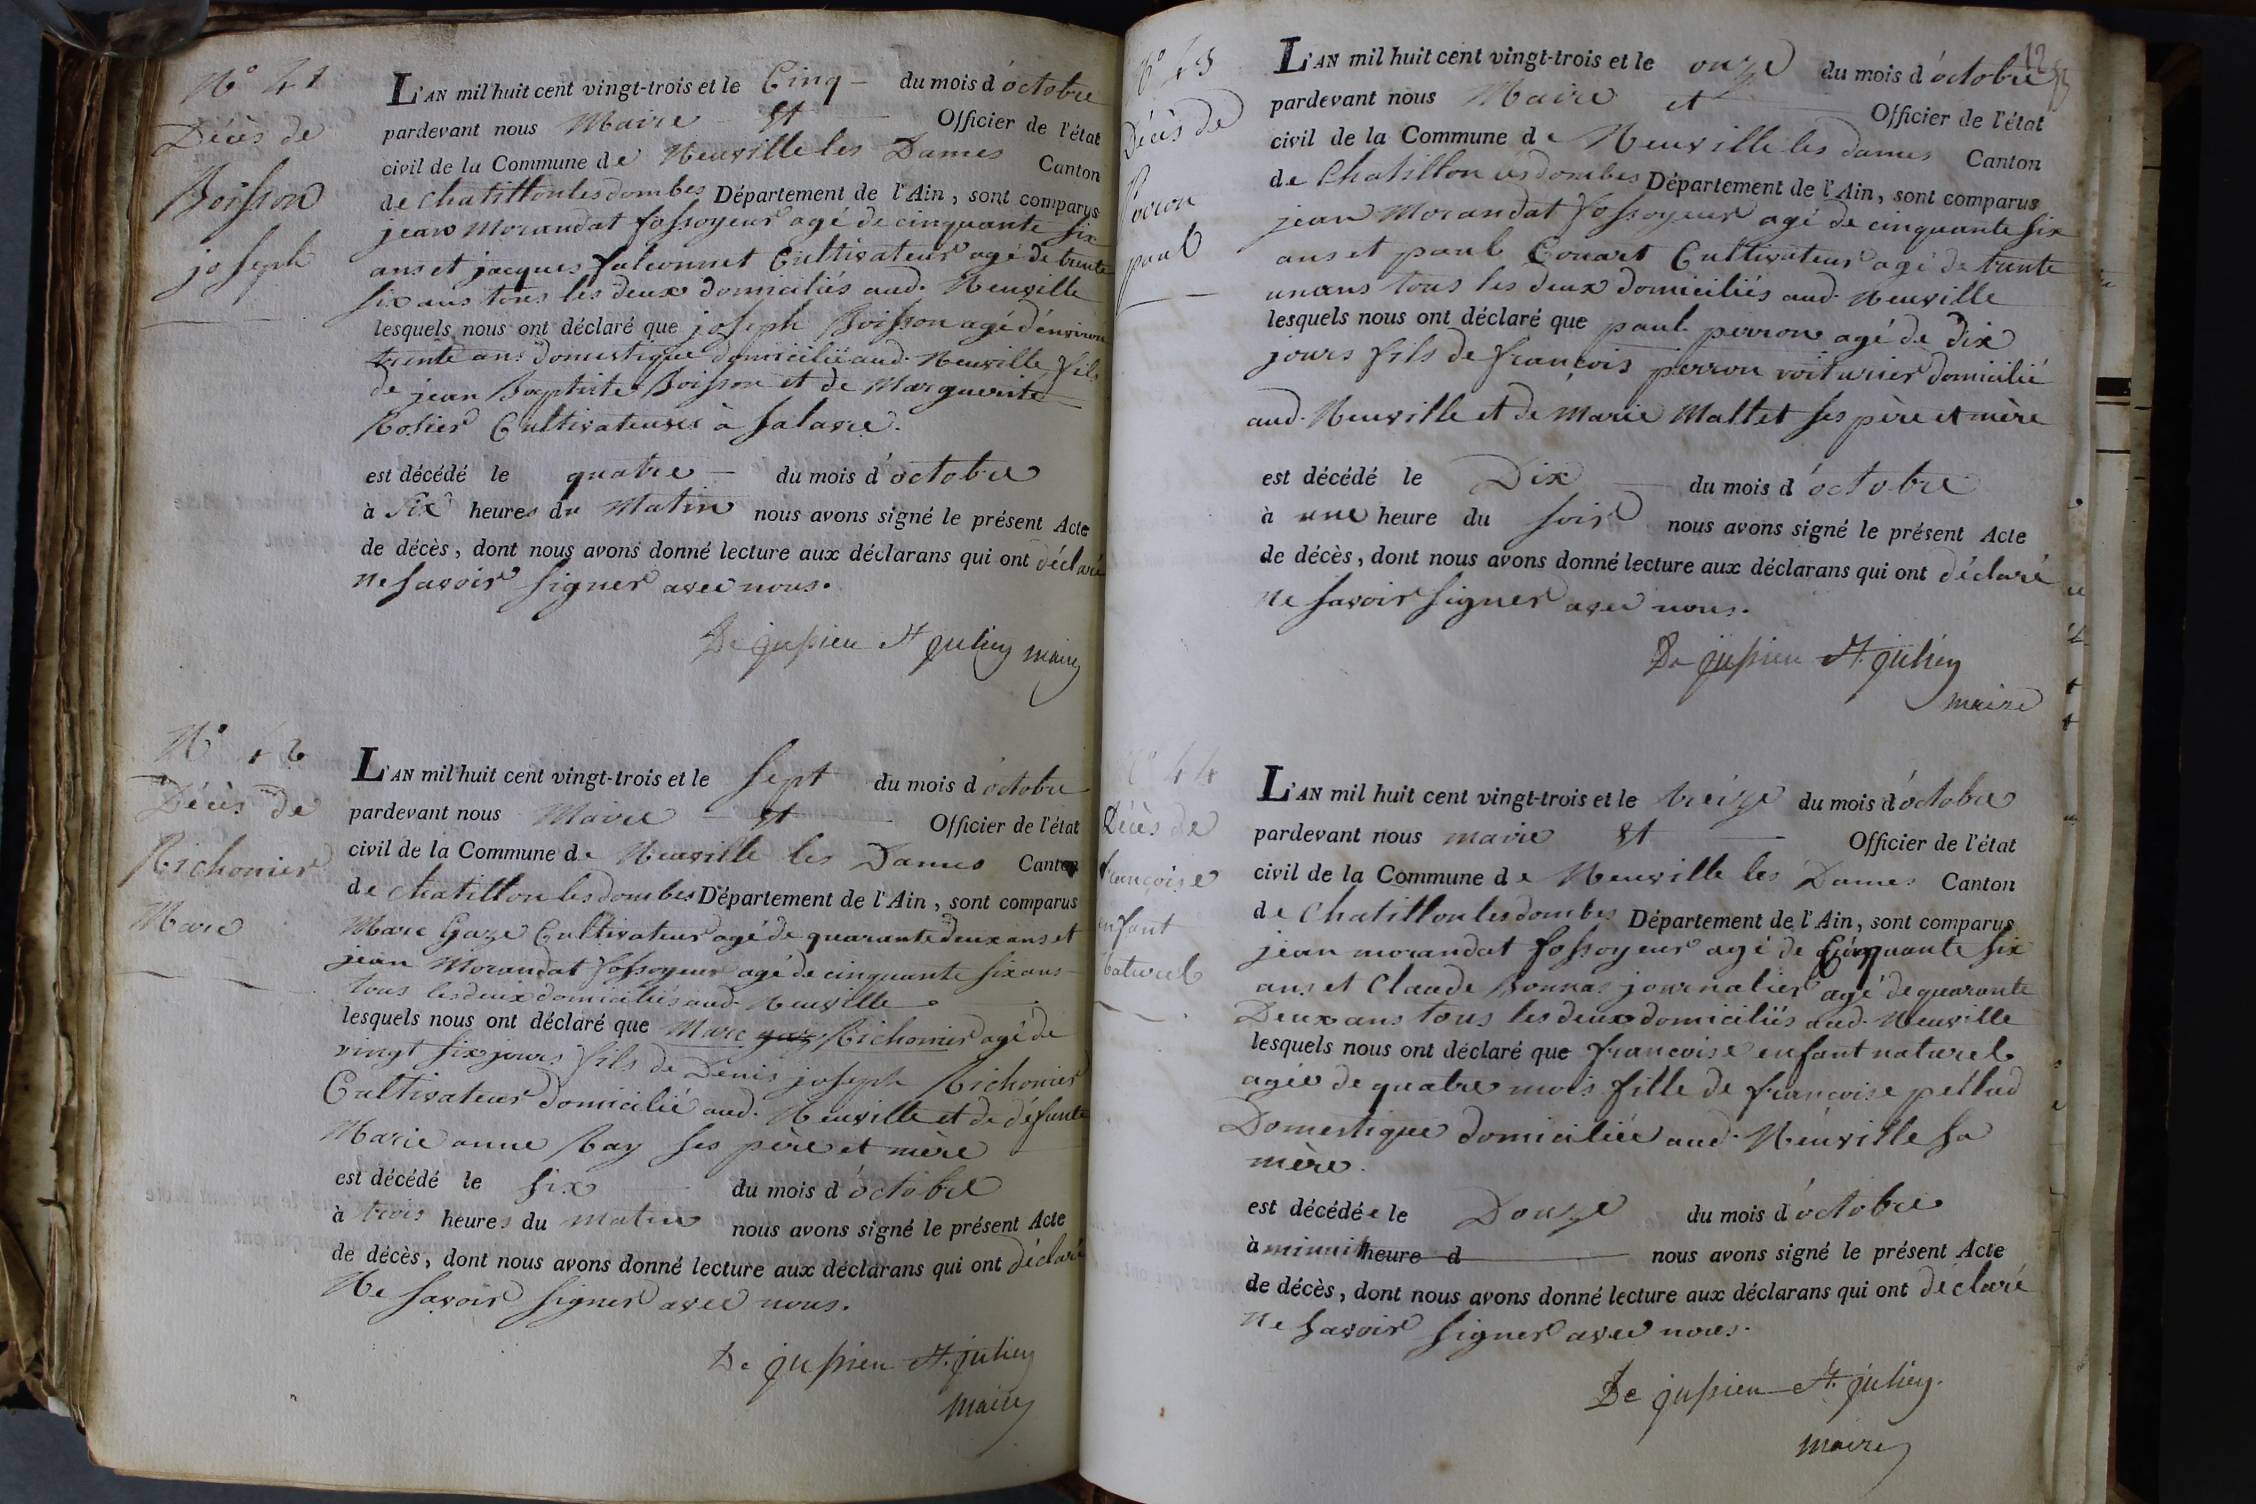 N° 41
Décès de
Boisson
joseph
L'AN mil huit cent vingt-trois et le Cinq du mois d'octobre
pardevant nous Maire et Officier de l'état
civil de la Commune de Neuville les Dames Canton
de Chatillon les dombes Département de l'Ain, sont comparus
jean Morandat fossoyeur agé de cinquante six
ans et jacques falconnet Cultivateur agé de trente
six ans tous les deux domiciliés aud. Neuville
lesquels nous ont déclaré que joseph Boisson agé d'environ
trente ans domestique domicilié aud. Neuville fils
de jean Baptiste Boisson et de Marguerite
Rosier Cultivateurs à
est décédé le quatre du mois d'octobre
à six heures du Matin nous avons signé le présent Acte
de décès, dont nous avons donné lecture aux déclarans qui ont déclaré
ne savoir signer avec nous.
De jussieu St julien maire
N° 42
Décès de
Richonier
Marc
L'AN mil huit cent vingt-trois et le sept du mois d'octobre
pardevant nous Maire et Officier de l'état
civil de la Commune de Neuville les Dames Canton
de Chatillon les dombes Département de l'Ain, sont comparus
Marc Gaze Cultivateur agé de quarante deux ans et
jean Morandat fossoyeur agé de cinquante six ans
tous les deux domiciliés aud. Neuville
lesquels nous ont déclaré que Marc gaz Richonier agé de
vingt six jours fils de Denis joseph Richonier
Cultivateur domicilié aud. Neuville et de défunte
Marie anne Ray ses pere et mère
est décédé le six du mois d'octobre
à trois heures du matin nous avons signé le présent Acte
de décès, dont nous avons donné lecture aux déclarans qui ont déclaré
Ne savoir signer avec nous.
De jussieu St. julien
maire
N° 43
Décès de
Perron
paul
12
L'AN mil huit cent vingt-trois et le onze du mois d'octobre
pardevant nous Maire et Officier de l'état
civil de la Commune de Neuville les dames Canton
de Chatillon les dombes Département de l'Ain, sont comparus
jean Morandat fossoyeur agé de cinquante six
ans et paul Couart Cultivateur agé de trente
un ans tous les deux domiciliés aud. Neuville
lesquels nous ont déclaré que paul perron agé de dix
jours fils de françois perron voiturier domicilié
aud. Neuville et de Marie Mallet ses père et mère
est décédé le Dix du mois d'octobre
à une heure du soir nous avons signé le présent Acte
de décès, dont nous avons donné lecture aux déclarans qui ont déclaré
ne savoir signer avec nous.
De jussieu St. julien
maire
N° 44
Décès de
françoise
enfant
naturel
L'AN mil huit cent vingt-trois et le treize du mois d'octobre
pardevant nous maire et Officier de l'état
civil de la Commune de Neuville les Dames Canton
de Chatillon les dombes Département de l'Ain, sont comparus
jean morandat fossoyeur agé de Cinquante six
ans et Claude Bonnas journalier agé de quarante
Deux ans tous les deux domiciliés aud. Neuville
lesquels nous ont déclaré que françoise enfant naturel
agée de quatre mois fille de françoise pellud
Domestique domiciliée aud. Neuville sa
mère.
est décédée le Douze du mois d'octobre
à minuit heure d nous avons signé le présent Acte
de décès, dont nous avons donné lecture aux déclarans qui ont déclaré
ne savoir signer avec nous.
De jussieu St. julien.
maire